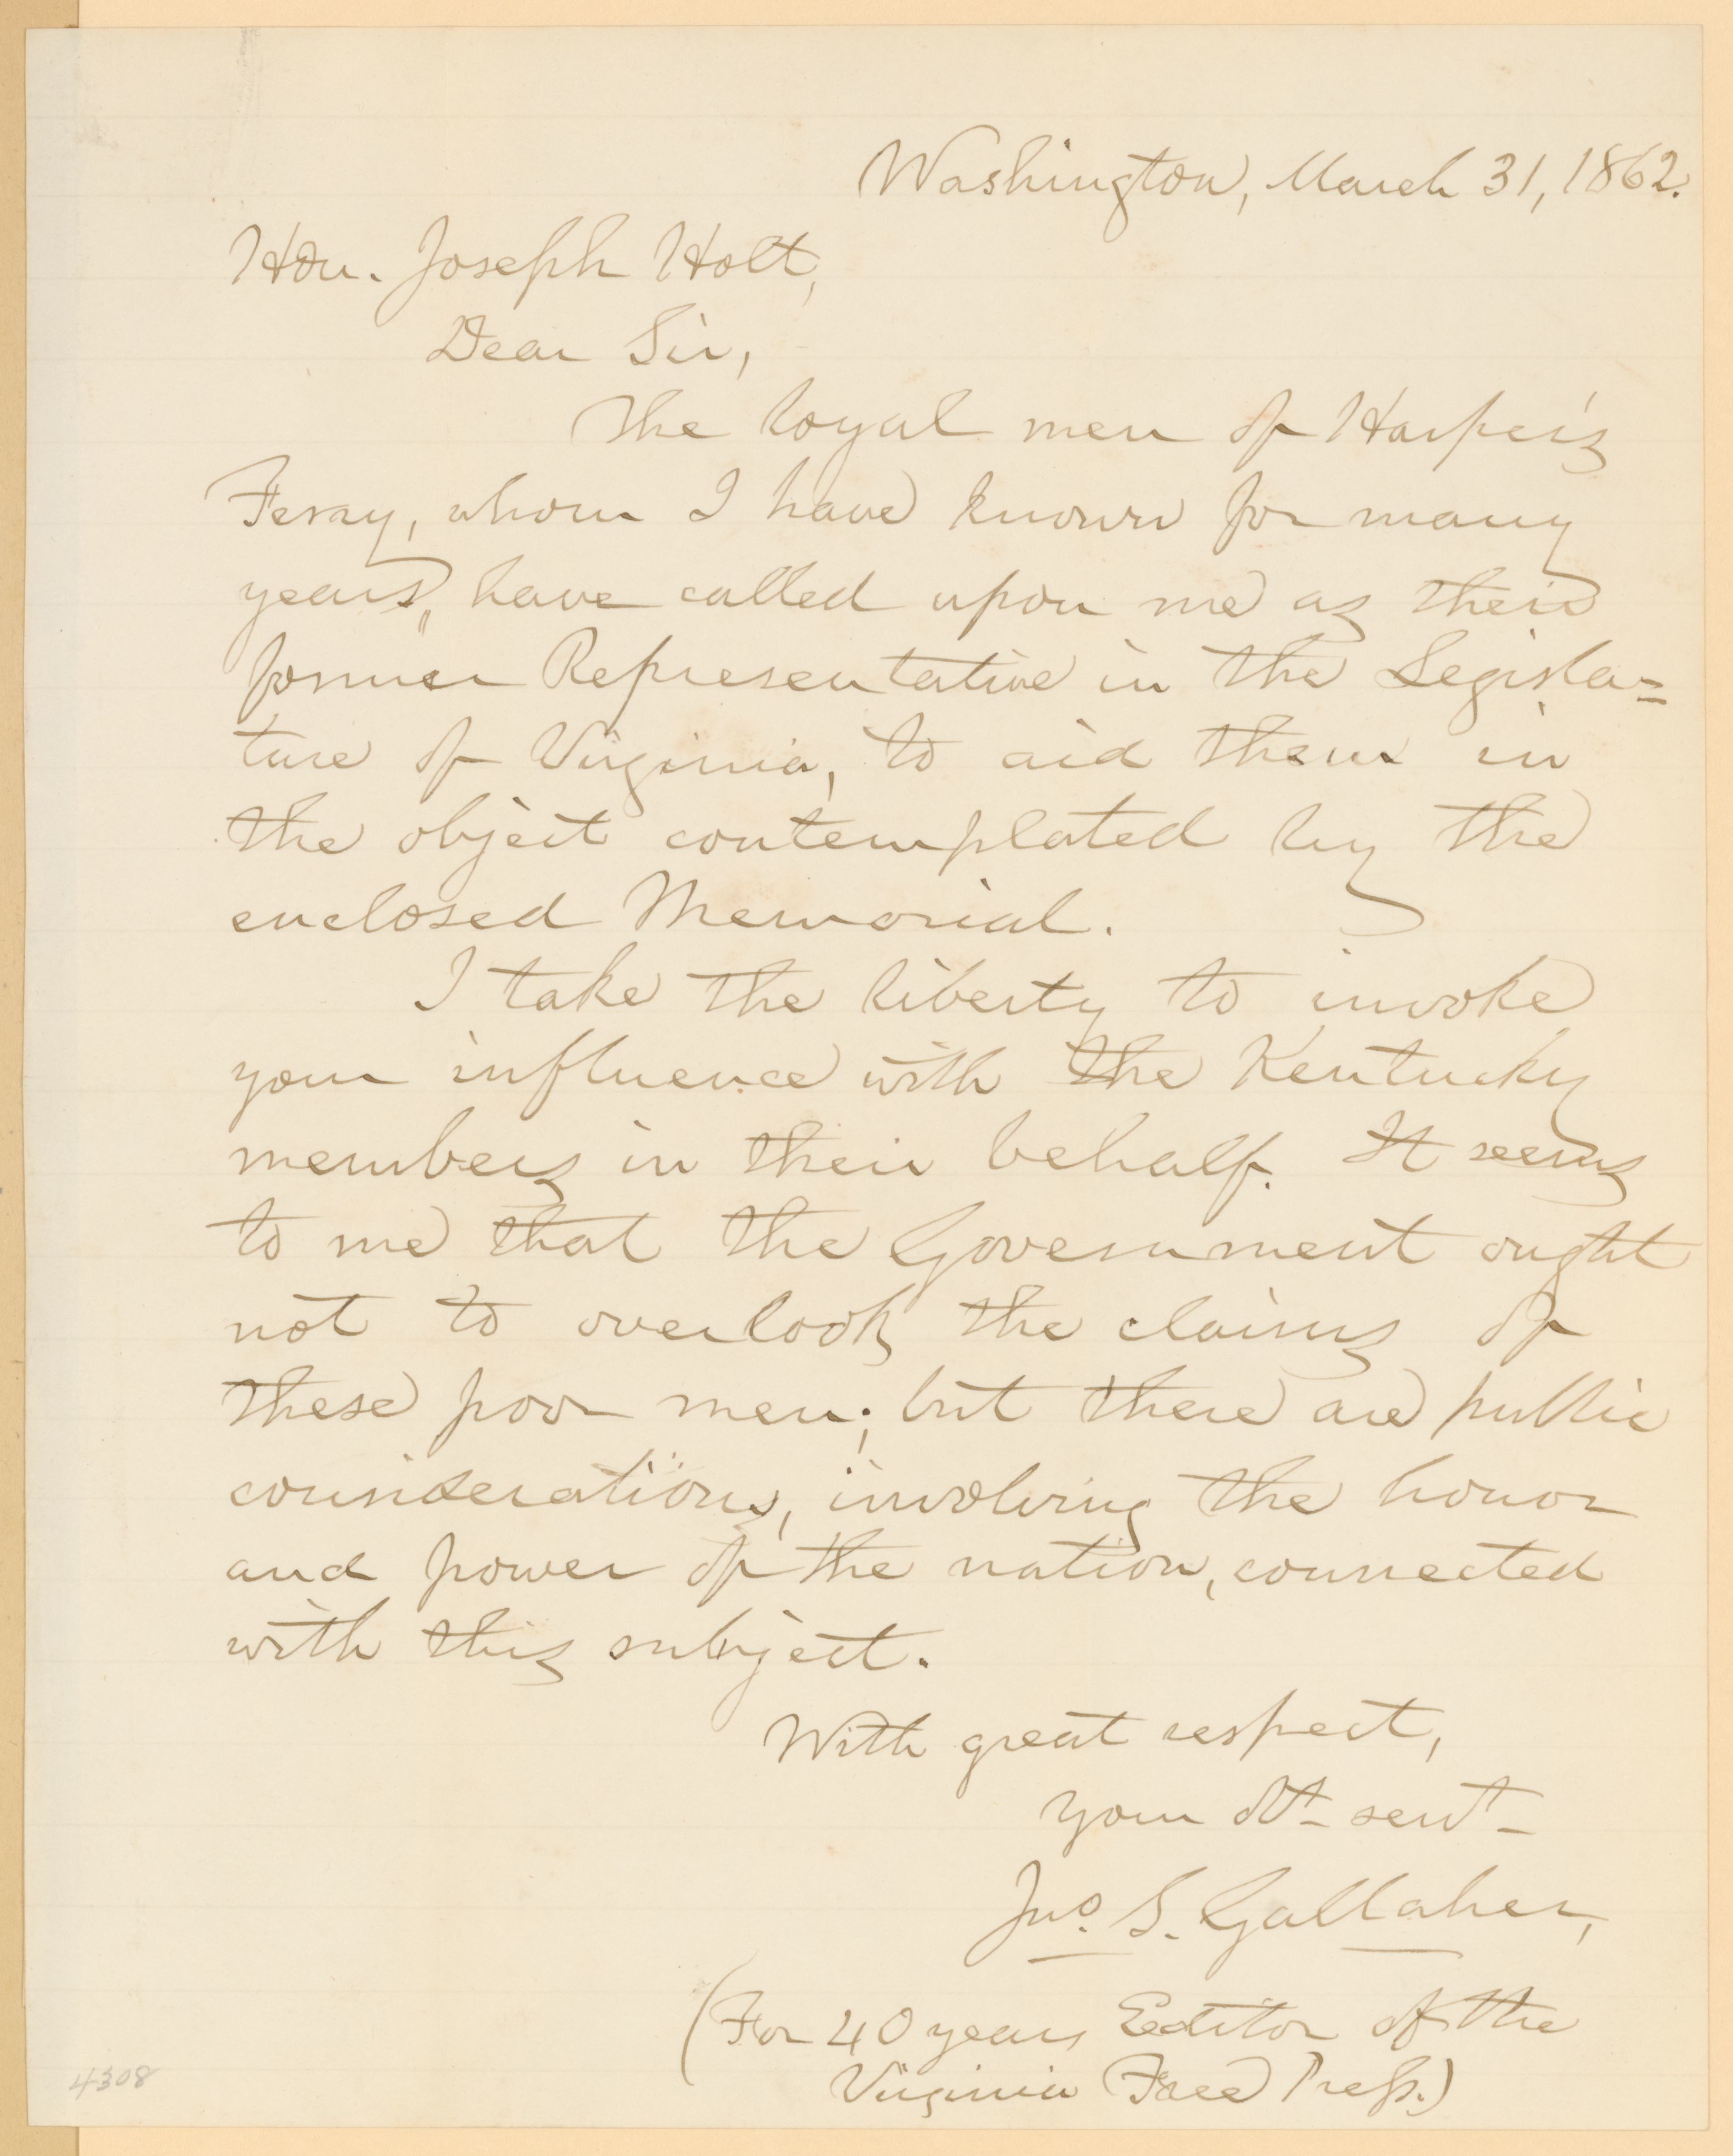 Washington, March 31, 1862.
Hon. Joseph Holt,
Dear Sir,
The loyal men of Harper's
Ferry, whom I have known for many
years, have called upon me as their
former Representative in the Legisla=
ture of Virginia, to aid them in
the object contemplated by the
enclosed Memorial.
I take the liberty to invoke
your influence with the Kentucky
members in their behalf. It seems
to me that the Government ought
not to overlook the claims of
these poor men; but there are public
considerations, involving the honor
and power of the nation, connected
with this subject.
With great respect,
Your Obt. servt.
Jno. S. Gallaher,
(For 40 years Editor of the
Virginia Free Press.)
4308